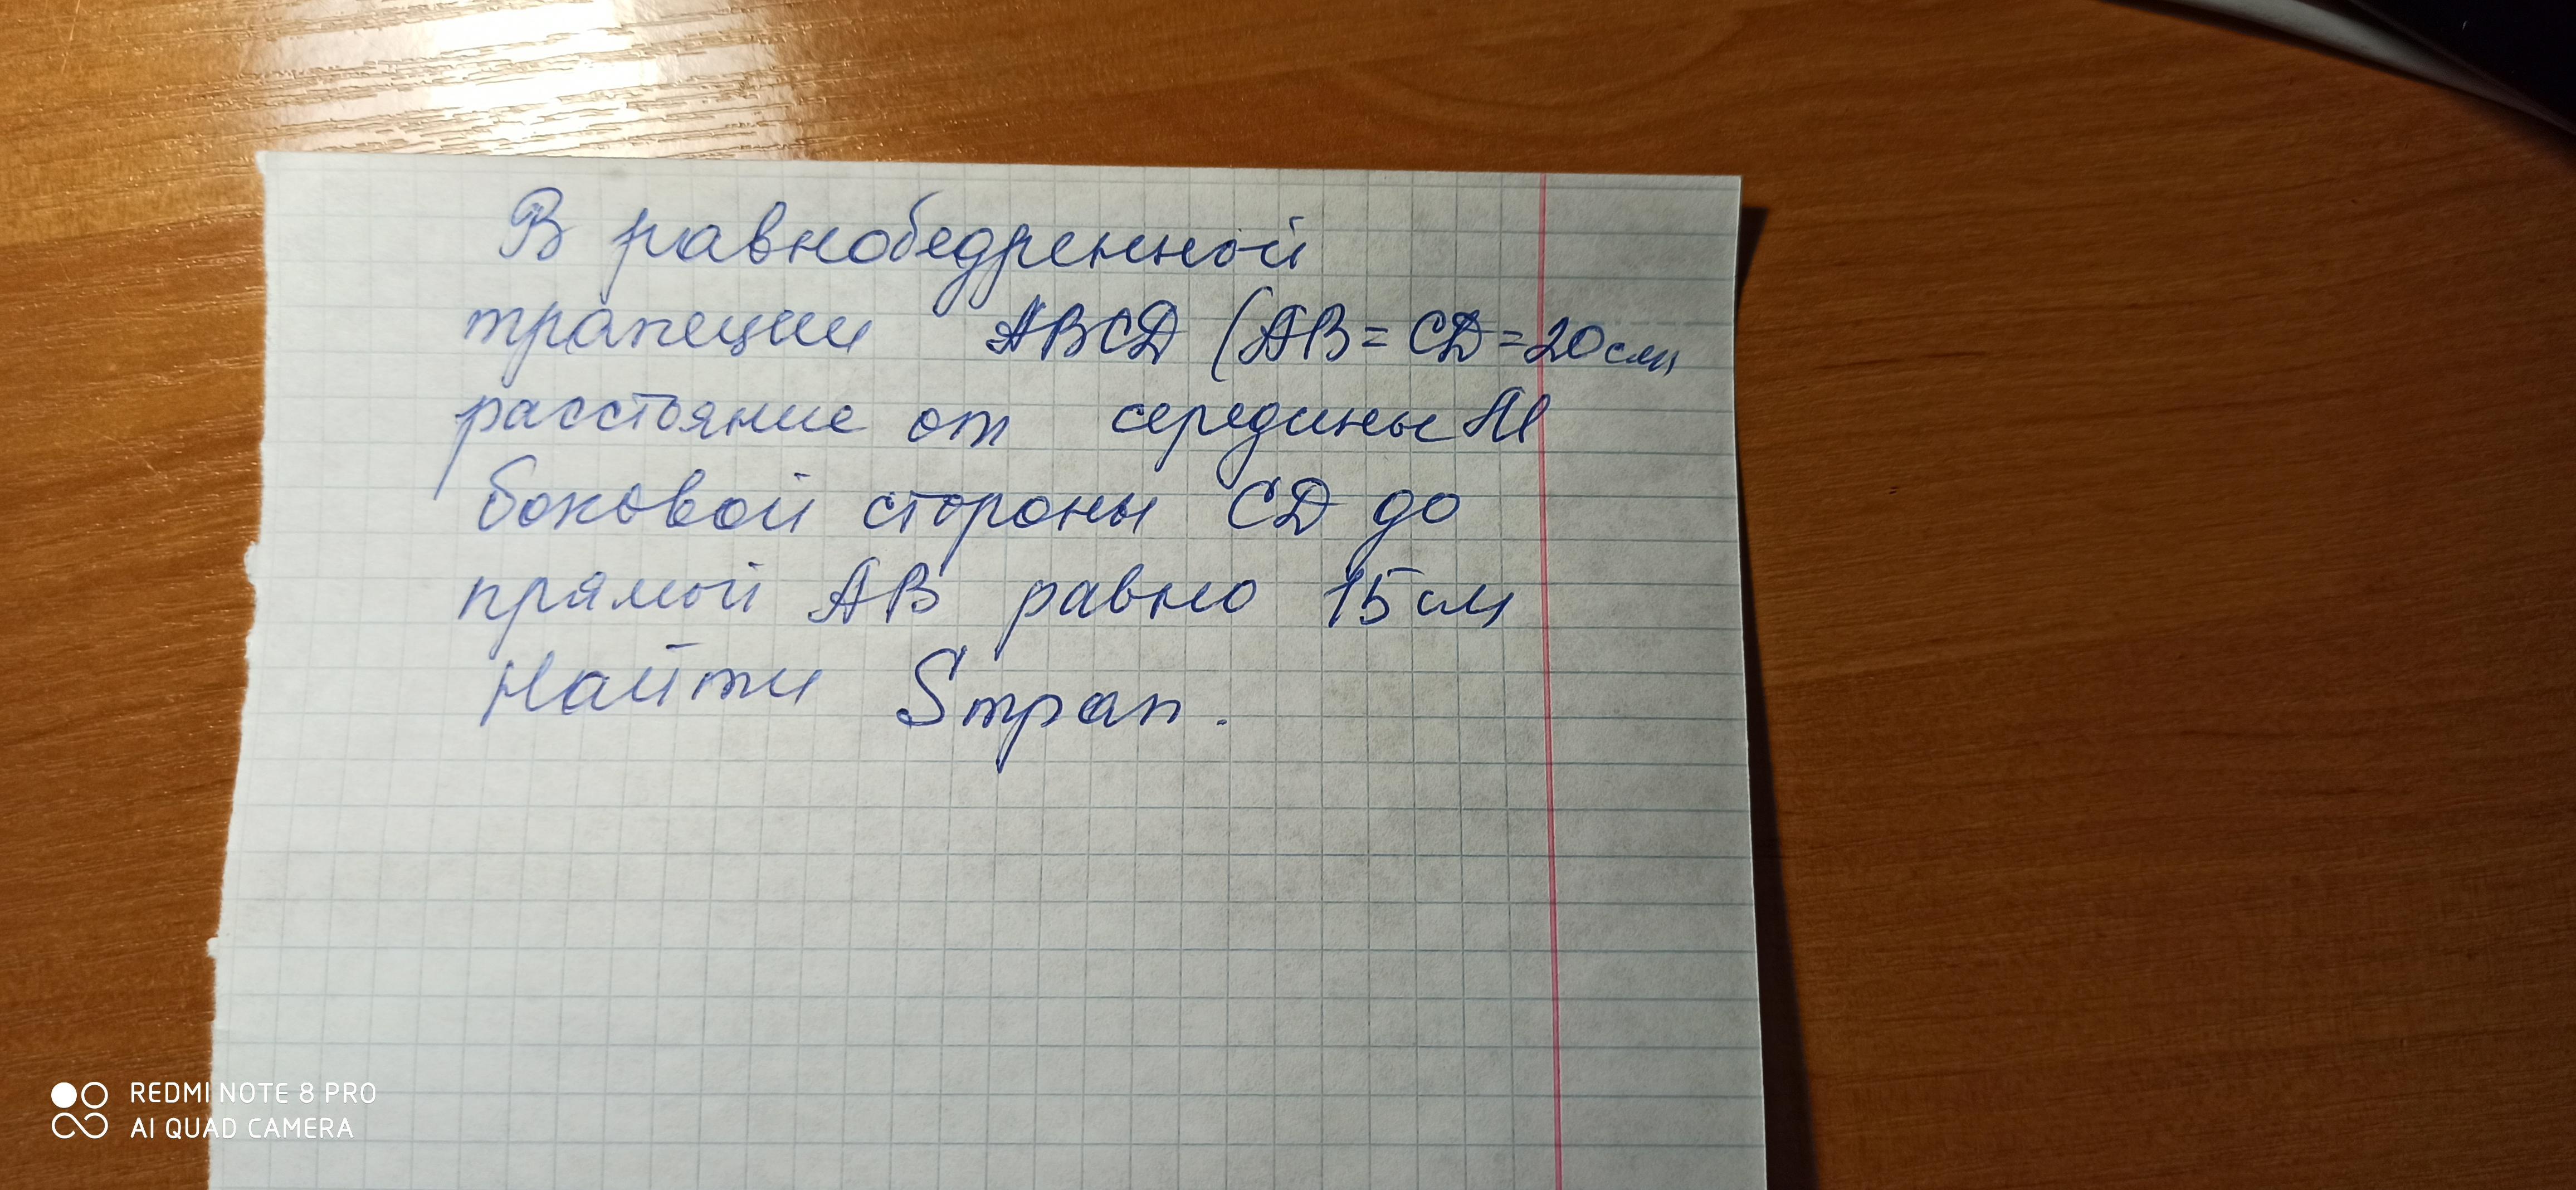 В равнобедренной
трапеции ABCD (AB = CD = 20см,
расстояние от середины М
боковой стороны CD до
прямой AB равно 15см
Найти Sтрап.
REDMI NOTE 8 PRO
AI QUAD CAMERA